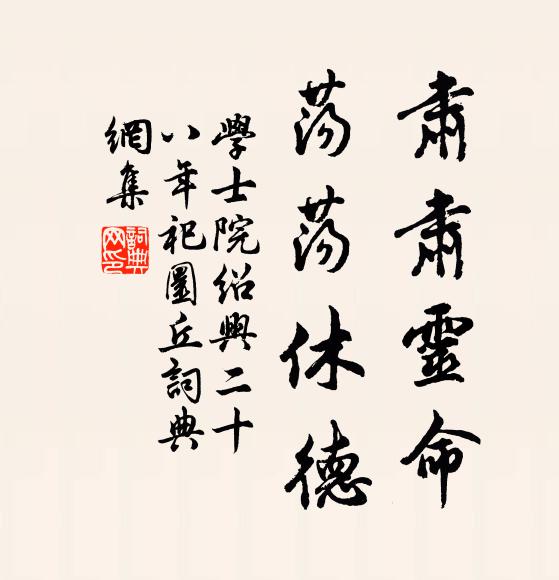 肅肅靈命
蕩蕩休德
學士院紹興二十
八年祀圜丘詞典
網集
詞典
网印